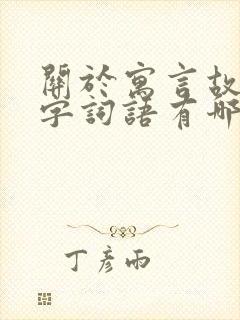 關於寓言故
字詞語有哪
丁彥雨